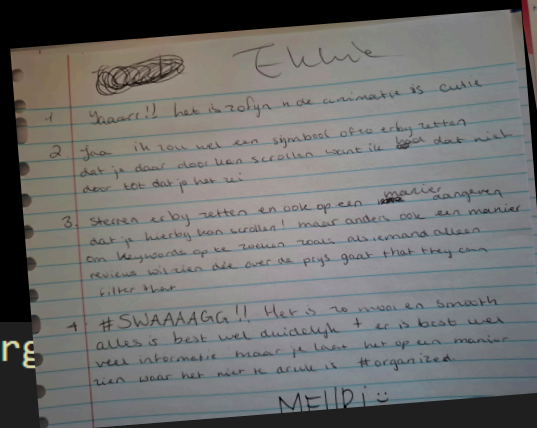 Ekkie
1 Yaaarr!! het is zo fijn n de animatie is cutie
2 Jaa ik zou wel een sijmbool ofzo erbij zetten
dat je daar door kan scrollen want ik had dat niet
door tot dat je het zei
3. Sterren erbij zetten en ook op een manier aangeven
dat je hierbij kan scrollen! maar anders ook een manier
om keywords op te zoeken zoals als iemand alleen
reviews wil zien die over de prijs gaat that they can
filter that
4 #SWAAAAGG!! Het is zo mooi en smooth
alles is best wel duidelijk + er is best wel
veel informatie maar je laat het op een manier
zien waar het niet te druk is #organized.
MEllDi :)
rg